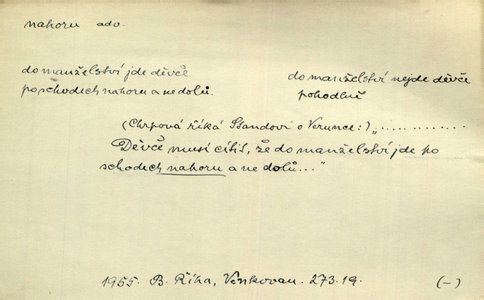 nahoru adv.
do manželství jde děvče
po schodech nahoru a ne dolů.
do manželství nejde děvče
pohodlně
(Chrpová říká Standovi o Verunce:) „..............
Děvče musí cítit, že do manželství jde po
schodech nahoru a ne dolů..."
1955. B. Říha, Venkovan. 273.19. (-)